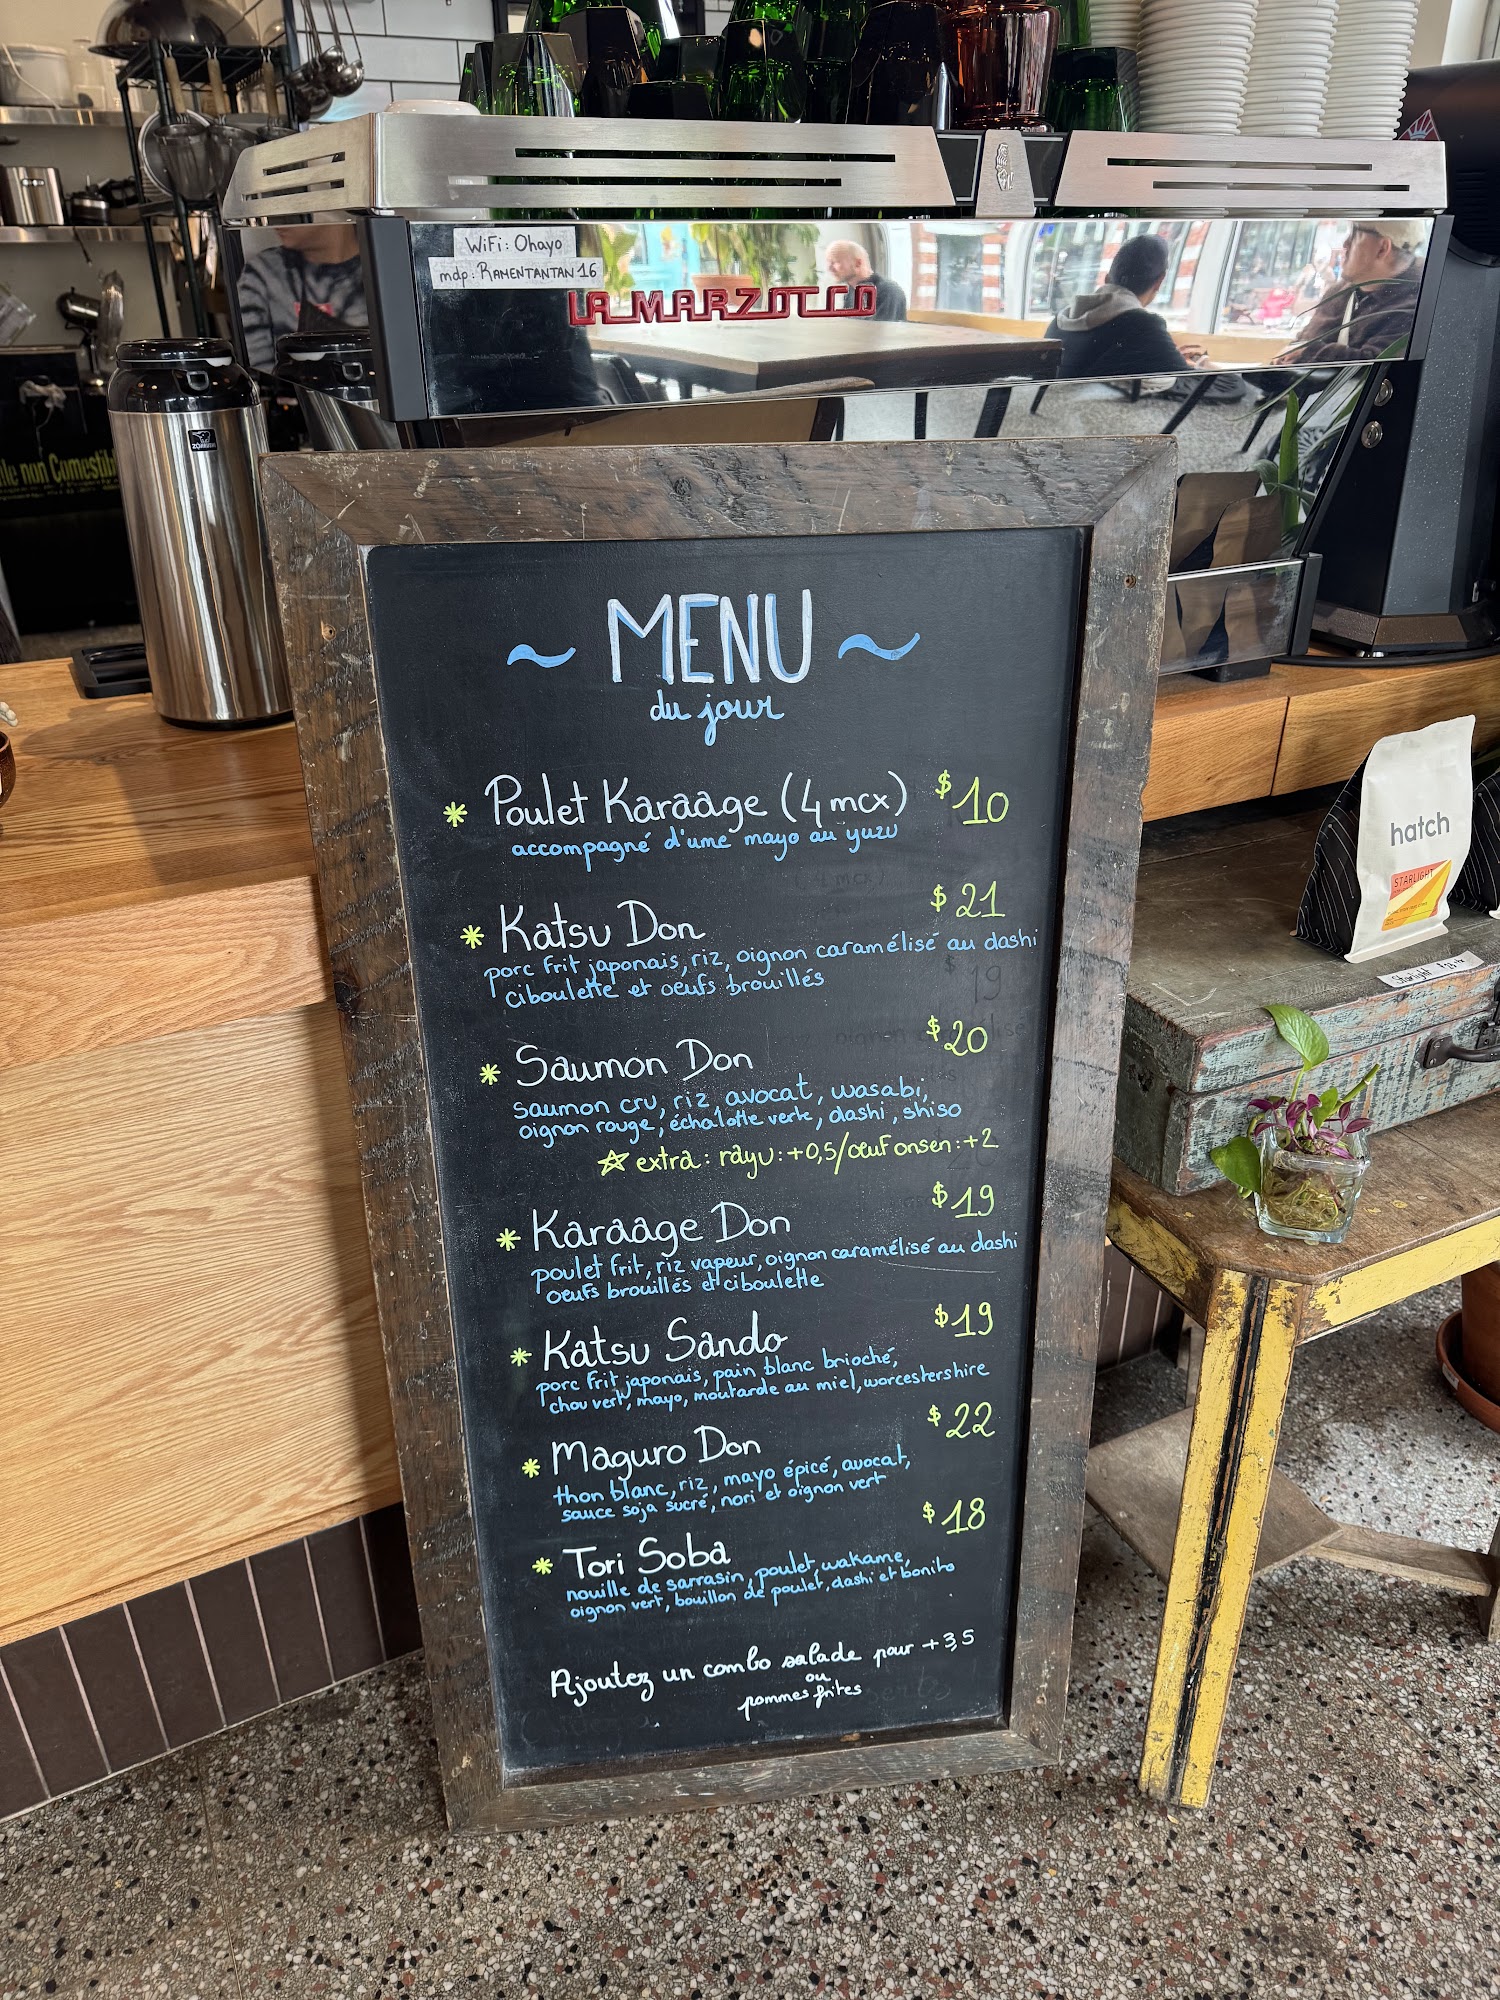 WiFi: Ohayo
mdp: RAMENTANTAN16
LA MARZOCCO
ZOJIRUSHI
MENU
du jour
Poulet Karaage (4 mcx) $10
accompagné d'une mayo au yuzu
Katsu Don $21
porc frit japonais, riz, oignon caramélisé au dashi
ciboulette et oeufs brouillés
Saumon Don $20
saumon cru, riz avocat, wasabi,
oignon rouge, échalotte verte, dashi, shiso
extra: rayu: +0,5/oeuf onsen: +2
Karaage Don $19
poulet frit, riz vapeur, oignon caramélisé au dashi
oeufs brouillés et ciboulette
Katsu Sando $19
porc frit japonais, pain blanc brioché,
chou vert, mayo, moutarde au miel, worcestershire
Maguro Don $22
thon blanc, riz, mayo épicé, avocat,
sauce soja sucré, nori et oignon vert
Tori Soba $18
nouille de sarrasin, poulet, wakame,
oignon vert, bouillon de poulet, dashi et bonito
Ajoutez un combo salade pour +3,5
ou
pommes frites
hatch
STARLIGHT
Starlight